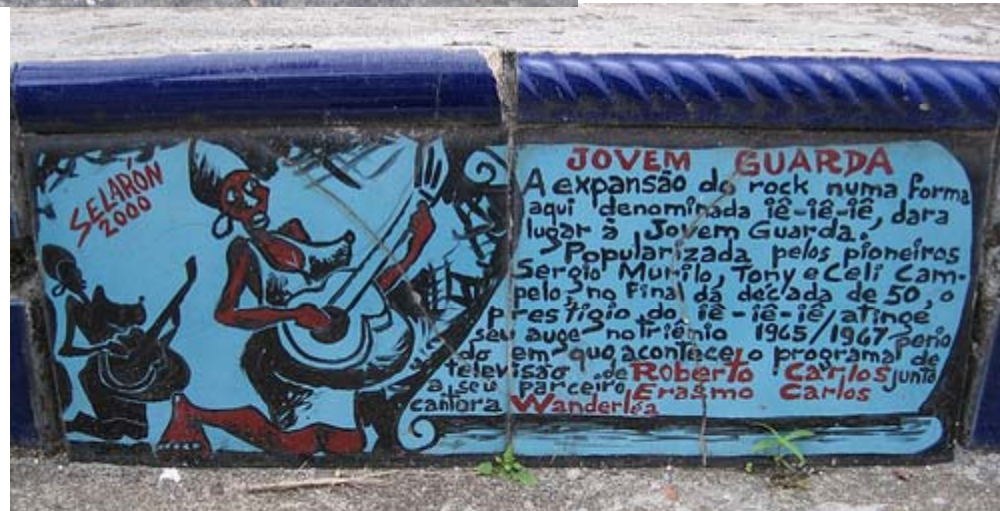 SELARÓN
2000
JOVEM GUARDA
A expansão do rock numa forma
aqui denominada iê-iê-iê, dara
lugar à Jovem Guarda.
Popularizada pelos pioneiros
Sergio Murilo, Tony e Celi Cam-
pelo, no final da década de 50, o
prestigio do iê-iê-iê atinge
seu auge no triênio 1965/1967 perio
do em que acontece o programa de
televisão de Roberto Carlos junto
a seu parceiro Erasmo Carlos
cantora Wanderléa